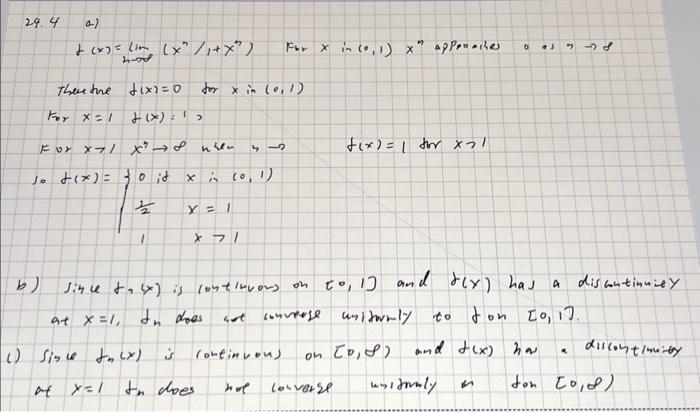 24.4 a)
f(x) = lim n→∞ (x^n / 1+x^n) For x in (0,1) x^n approaches 0 as n → ∞
Therefore f(x) = 0 for x in (0,1)
For x = 1 f(x) =
For x > 1 x^n → ∞ when n → f(x) = 1 for x > 1
so f(x) = { 0 if x in (0,1)
1/2 x = 1
1 x > 1
b) Since fn(x) is continuous on [0,1] and f(x) has a discontinuity
at x = 1, fn does not converge uniformly to f on [0,1].
c) Since fn(x) is continuous on [0,∞) and f(x) has a discontinuity
at x = 1 fn does not converge uniformly f on [0,∞)